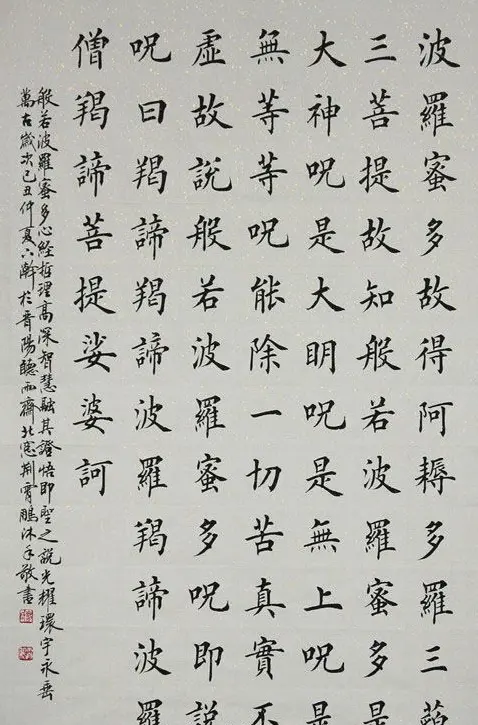 波羅蜜多故得阿耨多羅三藐
三菩提故知般若波羅蜜多是
大神呪是大明呪是無上呪是
無等等呪能除一切苦真實不
虛故說般若波羅蜜多呪即說
呪曰羯諦羯諦波羅羯諦波羅
僧羯諦菩提娑婆訶
般若波羅蜜多心經哲理高深智慧融其證悟即聖之說光耀環宇永垂
萬古歲次己丑仲夏六澣於晉陽聽雨齋北窓荆霄鵬沐手敬書